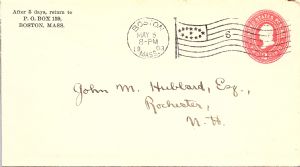 After 5 days, return to
P. O. BOX 159,
BOSTON, MASS.
BOSTON
MAY 5
8-PM
MASS.
John M. Hubbard, Esq.,
Rochester,
N. H.